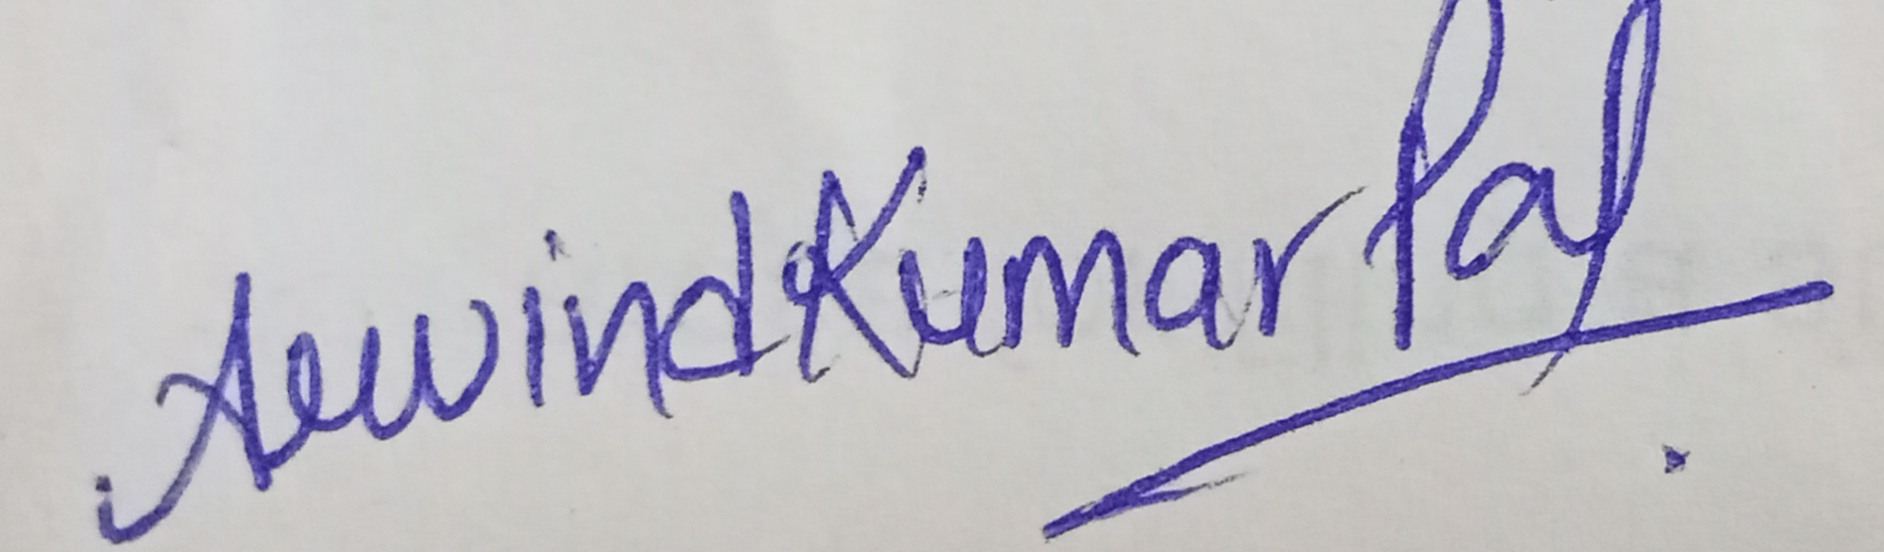 Arwind Kumar Pal